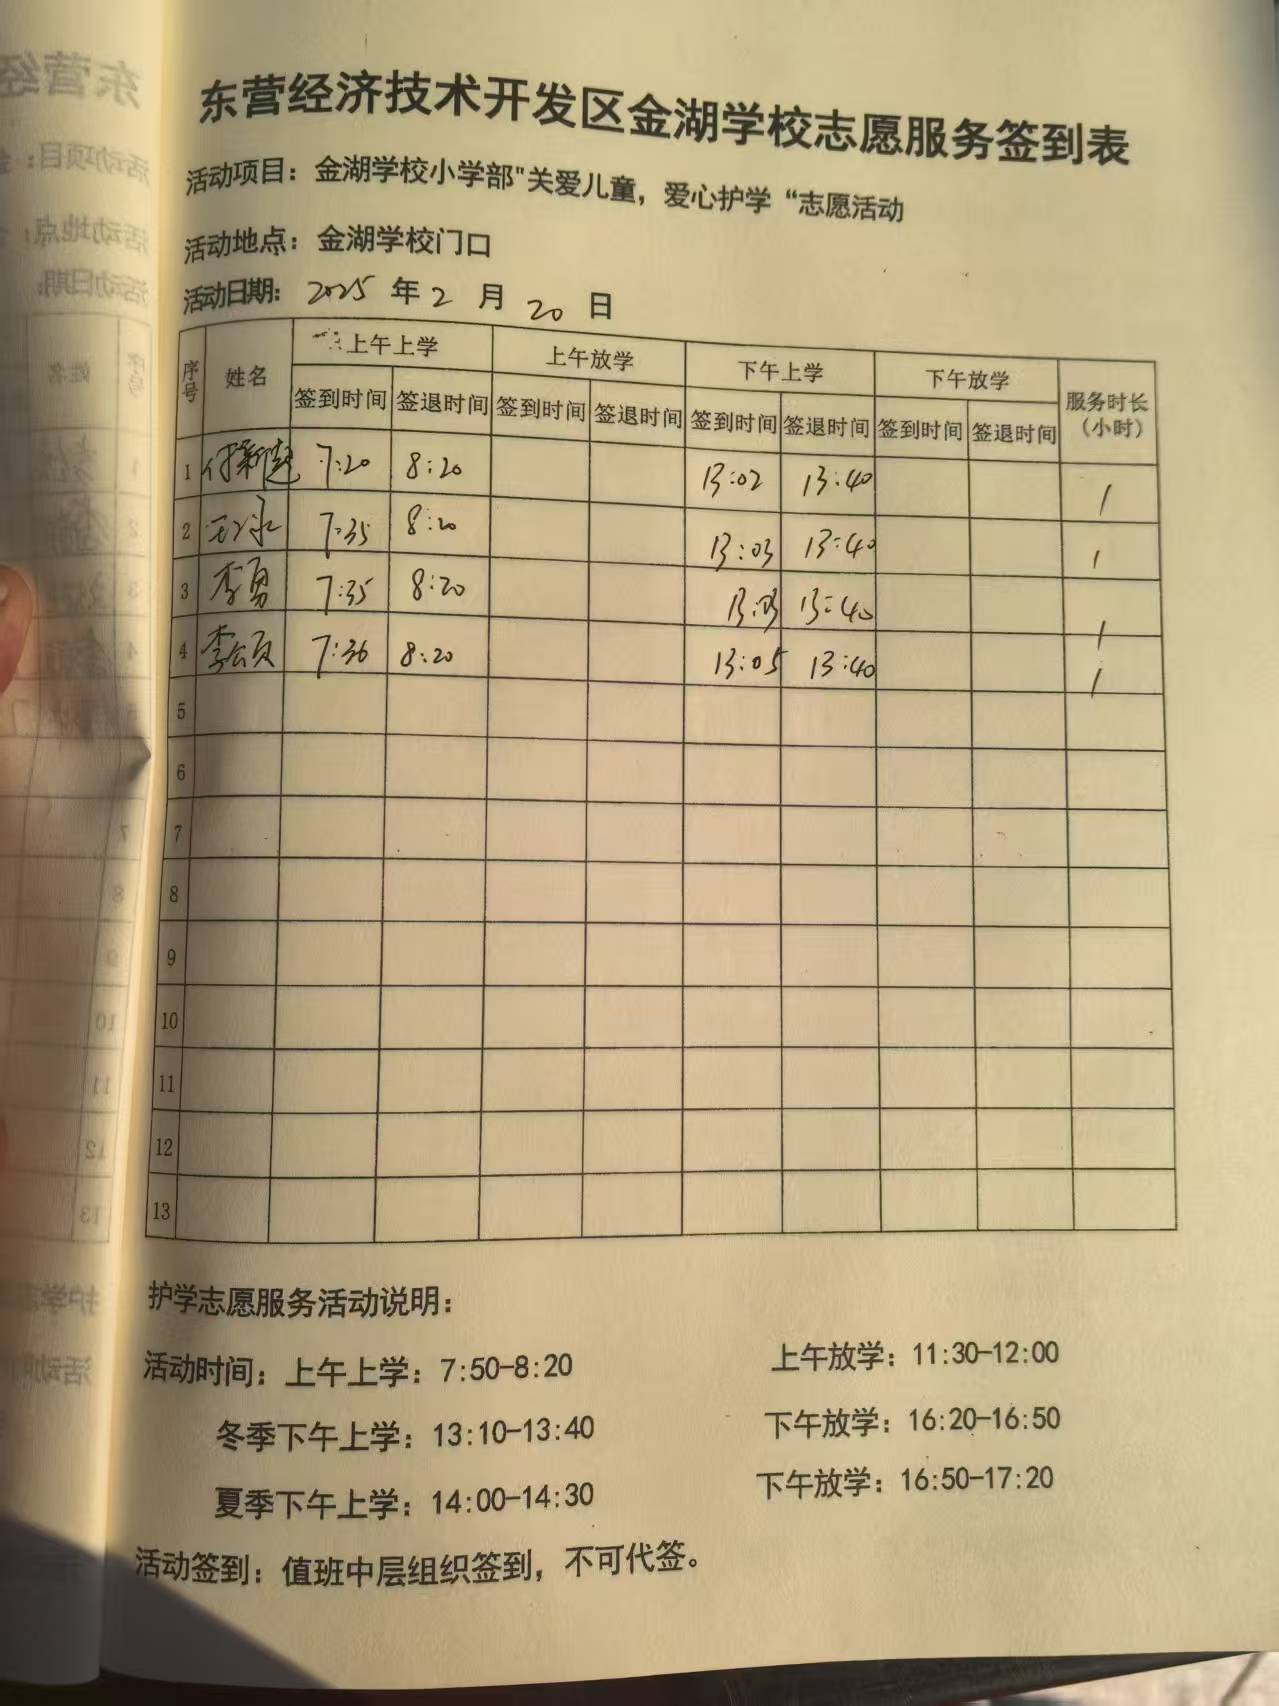 东营经济技术开发区金湖学校志愿服务签到表
活动项目：金湖学校小学部"关爱儿童，爱心护学“志愿活动
活动地点：金湖学校门口
活动日期： 2025 年 2 月 20 日
序号 姓名 上午上学 上午放学 下午上学 下午放学 服务时长（小时）
签到时间 签退时间 签到时间 签退时间 签到时间 签退时间 签到时间 签退时间
1 7:20 8:20 13:02 13:40 1
2 王永 7:35 8:20 13:03 13:40 1
3 李勇 7:35 8:20 13:03 13:40 1
4 李颂 7:36 8:20 13:05 13:40 1
5
6
7
8
9
10
11
12
13
护学志愿服务活动说明：
活动时间：上午上学：7:50-8:20 上午放学：11:30-12:00
冬季下午上学：13:10-13:40 下午放学：16:20-16:50
夏季下午上学：14:00-14:30 下午放学：16:50-17:20
活动签到：值班中层组织签到，不可代签。